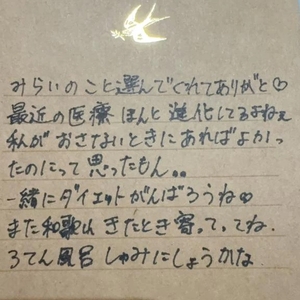 みらいのこと選んでくれてありがと♡
最近の医療 ほんと 進化してるよねぇ
私が おさないときにあればよかっ
たのにって 思ったもん。。
一緒にダイエットがんばろうね♡
また和歌山 きたとき寄ってってね.
ろてん風呂 しゅみにしょうかな